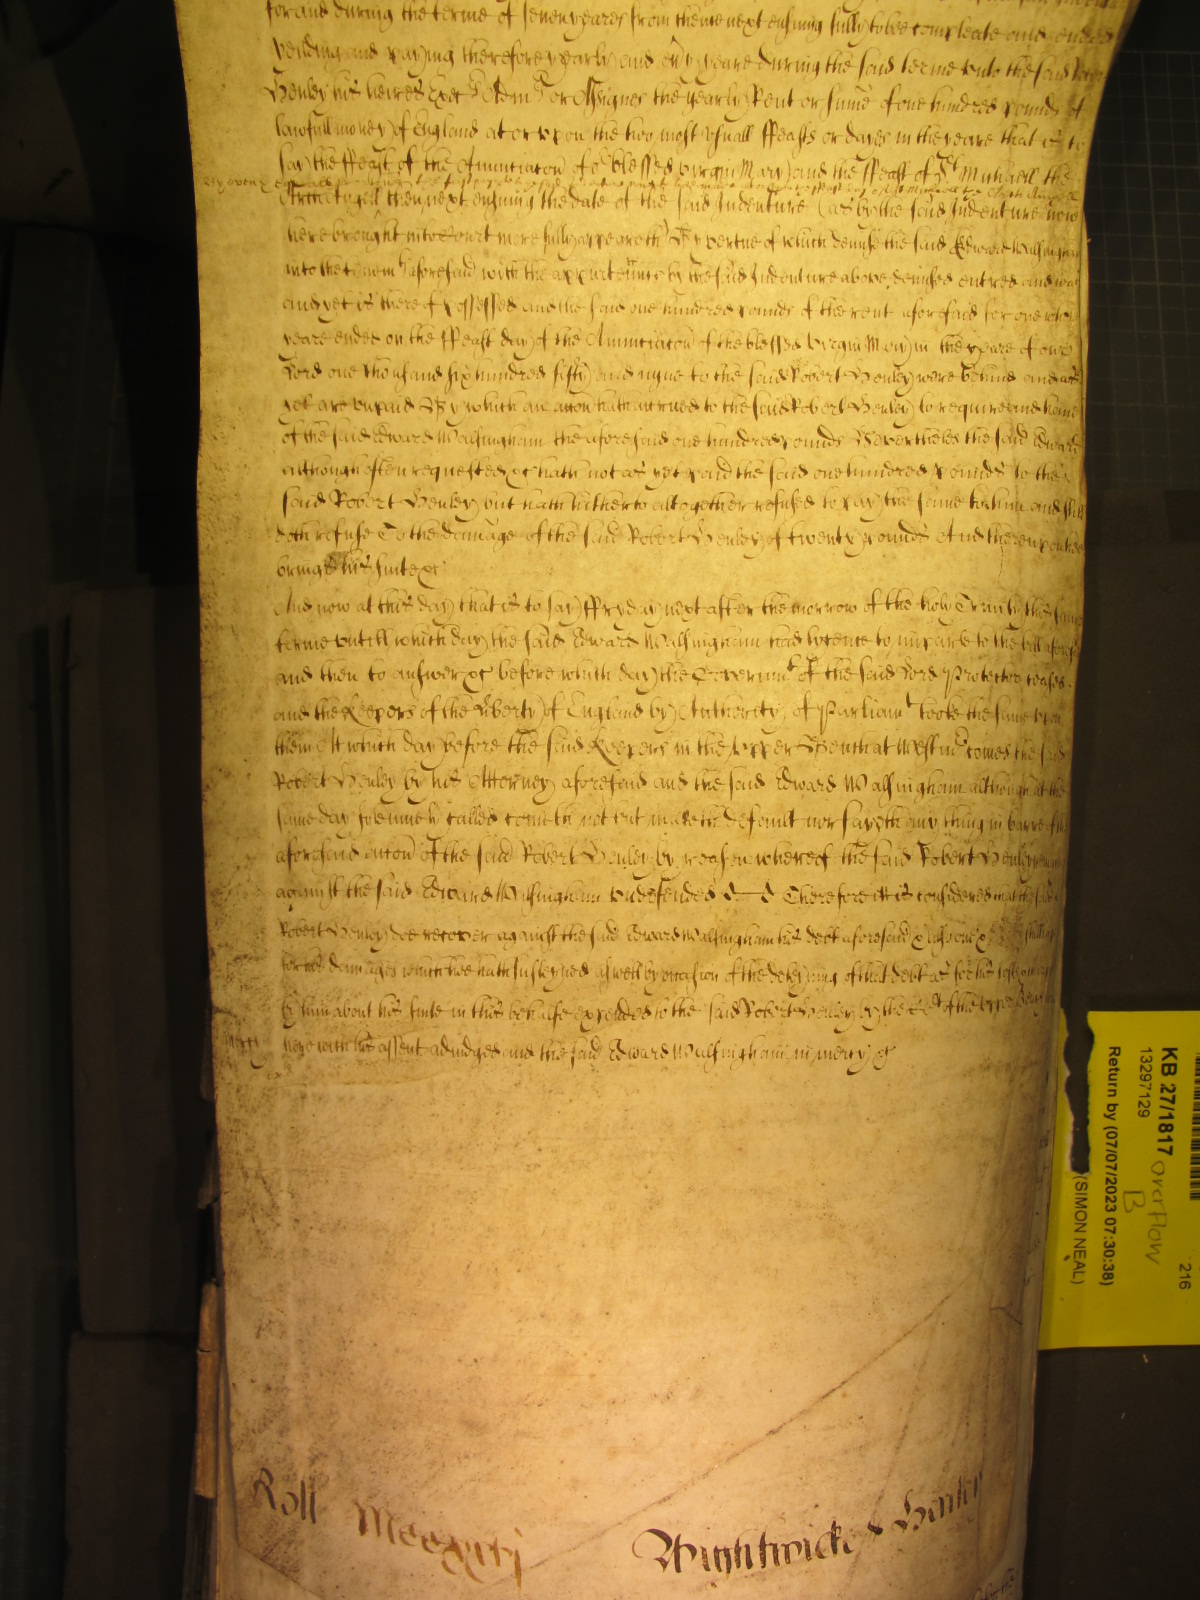 for and during the terme of seven yeares from thence next ensuing fully to bee compleate and ended
yeilding and paying therefore yearly and ev'y yeare during the said terme unto the said
Henley his heires Exec's Adm's or Assignes the yearly Rent or summe of one hundred pounds of
lawfull money of England at or upon the two most usuall Feasts or dayes in the yeare that is to
say the Feast of the Annunciacon of o'r blessed virgin Mary and the Feast of St Michaell the
Archangell then next ensuing the date of the said Indenture (as by the said Indenture now
here brought into Court more fully appeareth) By vertue of which demise the said Edward Walsingham
into the tenem'ts aforesaid with the appurten'nces by the said Indenture above demised entred and was
and yet is thereof possessed and the said one hundred pounds of the rent aforesaid for one whole
yeare ended on the Feast day of the Annunciacon of the blessed Virgin Mary in the yeare of our
Lord one thousand six hundred fifty and nyne to the said Robert Henley were behind and as
yet are unpaid By which an accon hath accrued to the said Robert Henley to require and have
of the said Edward Walsingham the aforesaid one hundred pounds Neverthelès the said Edward
although often requested &c hath not as yet paid the said one hundred pounds to the
said Robert Henley but hath hitherto altogether refused to pay the same to him and still
doth refuse To the damage of the said Robert Henley of twenty pounds And thereupon hee
brings his suite &c
And now at this day that is to say Fryday next after the morrow of the holy Trinity this same
terme untill which day the said Edward Walsingham had lycence to imparle to the bill aforesaid
and then to answer &c before which day the Governm't of the said Lord Protector ceased
and the Keepers of the Liberty of England by Authority of Parliam't tooke the same upon
them At which day before the said Keepers in the Upper Bench at Westm' comes the said
Robert Henley by his Attorney aforesaid and the said Edward Walsingham although at the
same day solemnely called cometh not but maketh default nor sayeth any thing in barre of the
aforesaid accon of the said Robert Henley by reason whereof the said Robert Henley
against the said Edward Walsingham undefended Therefore it is considered that the said
Robert Henley doe recover against the said Edward Walsingham his debt aforesaid
for his damages which hee hath susteyned aswell by occasion of the deteyning of that debt as for his costs
by him about his suite in this behalfe expended to the said Robert Henley by the Co't of the Upper Bench
Mercy here with his assent adiudged and the said Edward Walsingham in mercy &c
Roll Wightwicke & Henley
KB 27/1817 overflow
B
13297129
216
Return by (07/07/2023 07:30:38)
(SIMON NEAL)